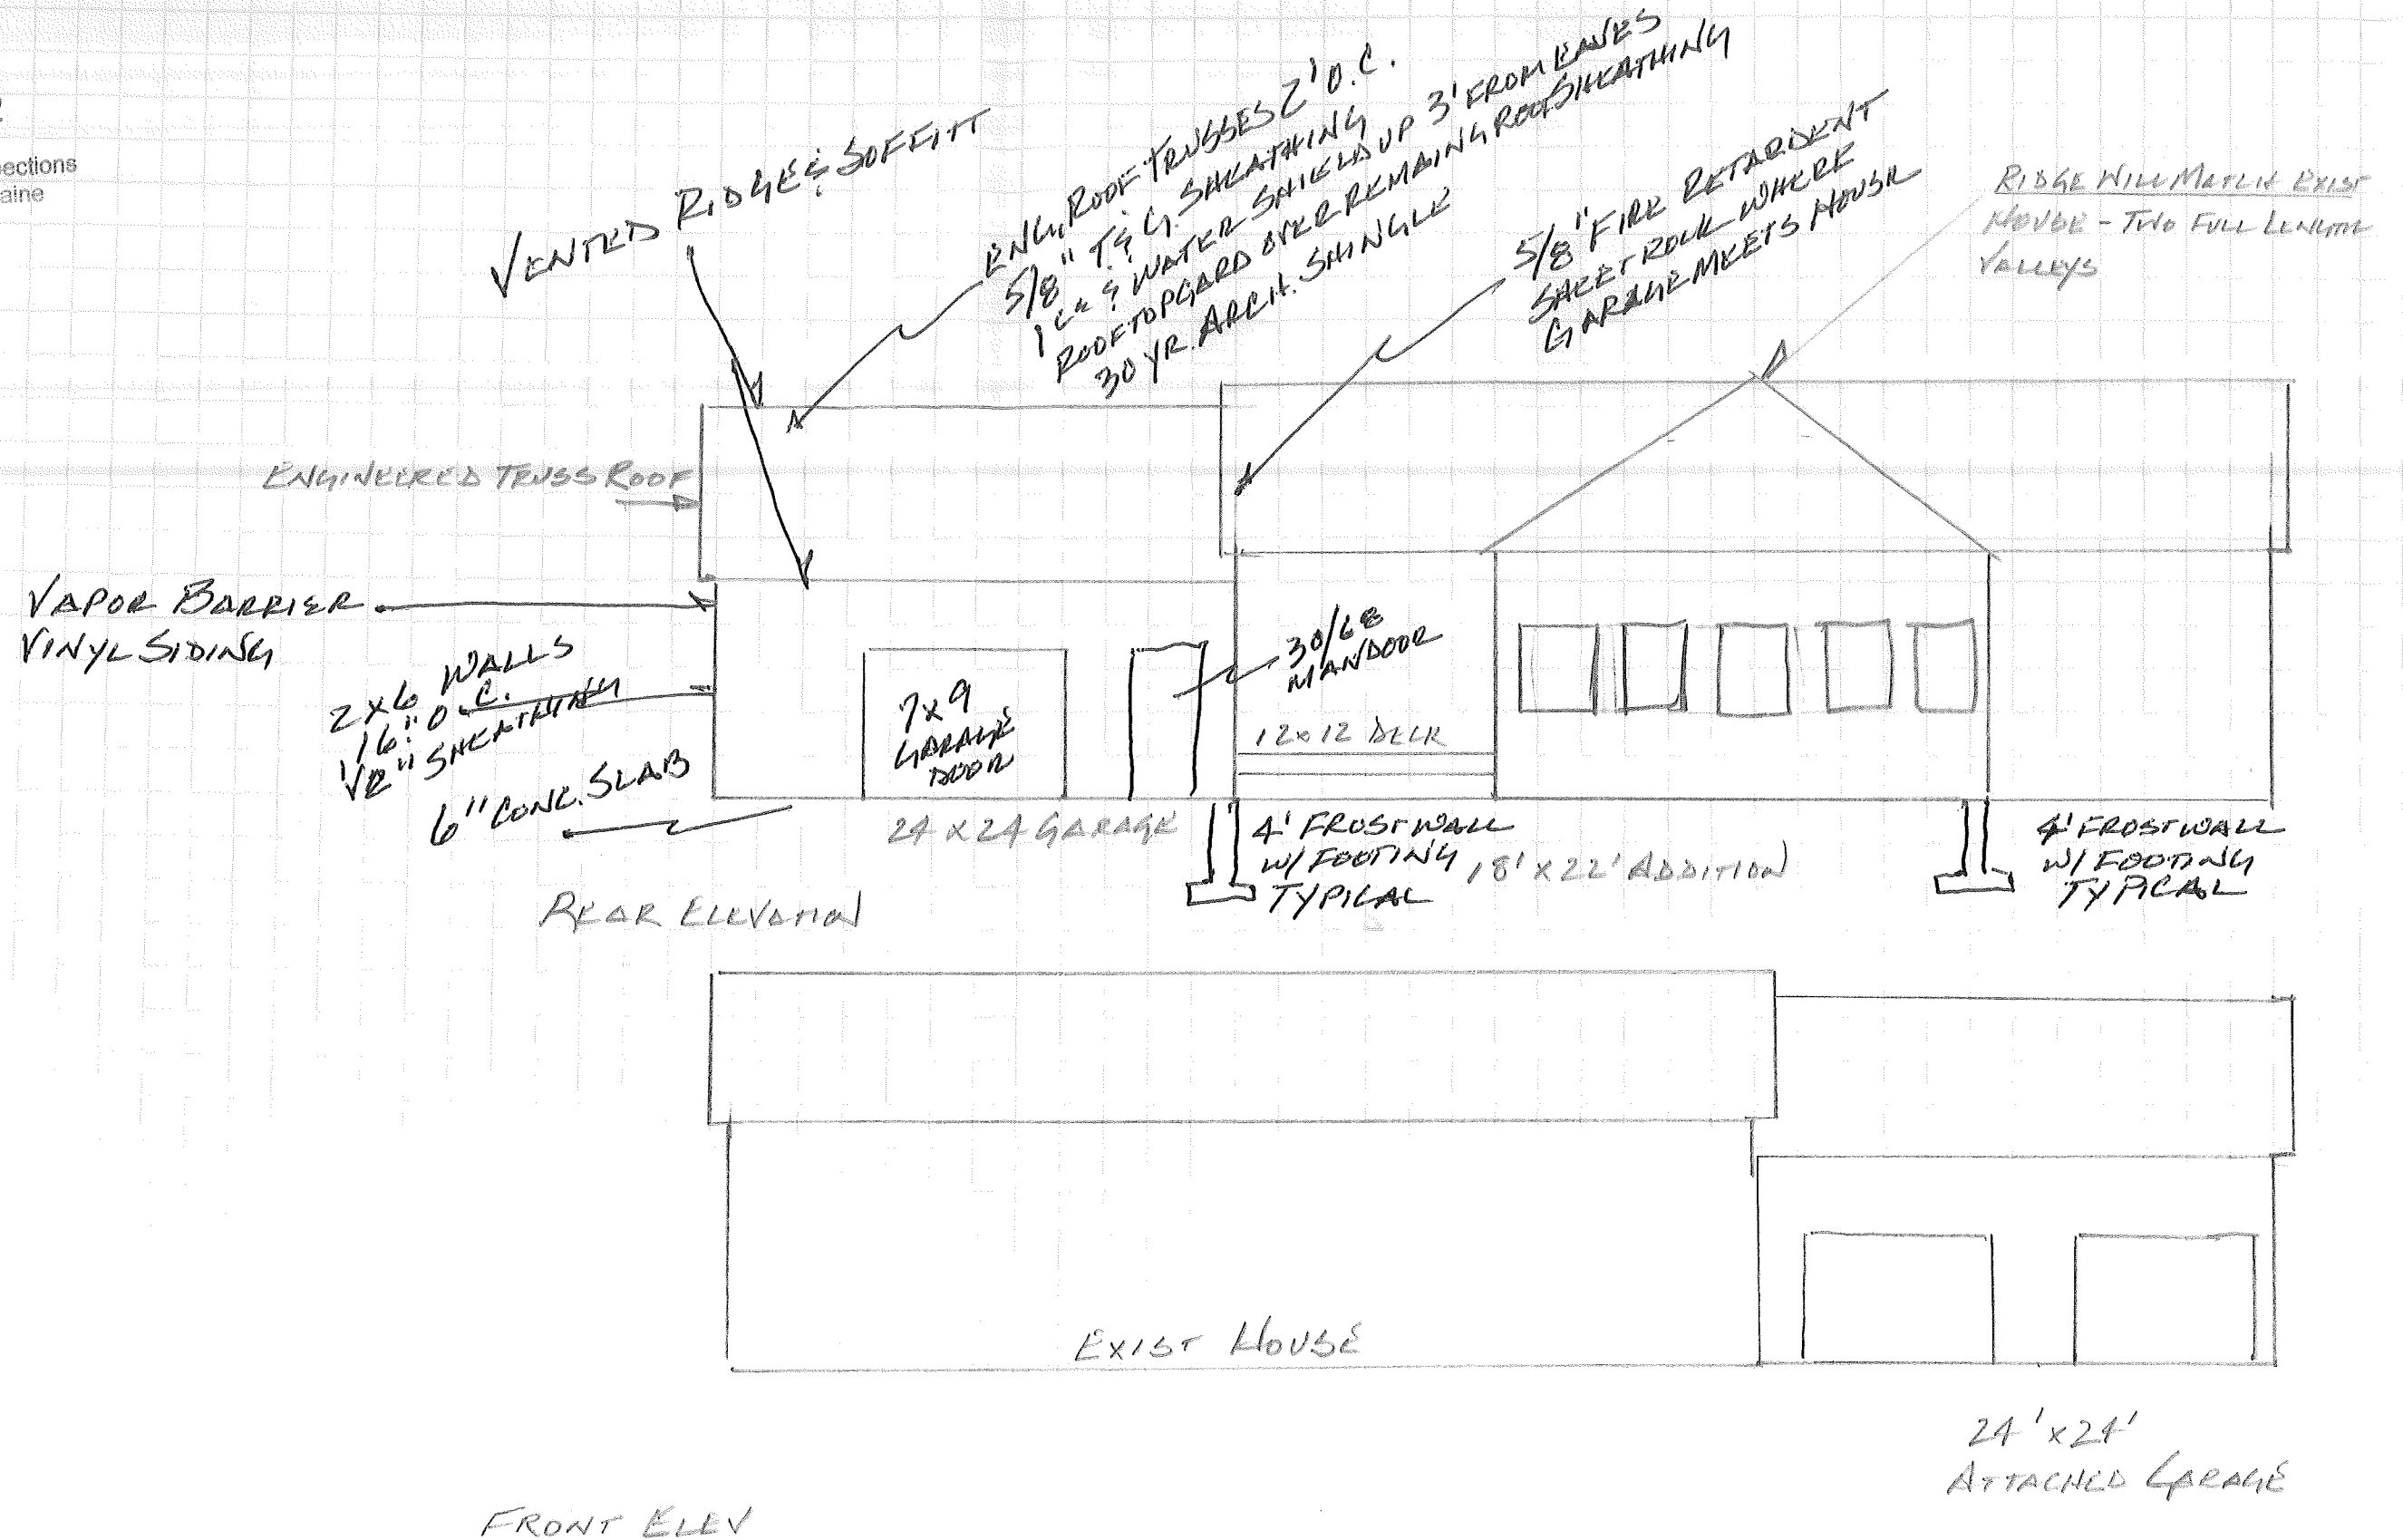 ections
aine
VENTED RIDGE & SOFFITT
ENG. ROOF TRUSSES 2' O.C.
5/8" T & G. SHEATHING
ICE & WATER SHIELD UP 3' FROM EAVES
ROOFTOPGARD OVER REMAING ROOF SHEATHING
30 YR. ARCH. SHINGLE
5/8" FIRE RETARDENT
SHEETROCK WHERE
GARAGE MEETS HOUSE
RIDGE WILL MATCH EXIST
HOUSE - TWO FULL LENGTH
VALLEYS
ENGINEERED TRUSS ROOF
VAPOR BARRIER
VINYL SIDING
2x6 WALLS
16" O.C.
1/2" SHEATHING
6" CONC. SLAB
7x9
GARAGE
DOOR
30/68
MANDOOR
12x12 DECK
24 x 24 GARAGE
4' FROSTWALL
W/ FOOTING
TYPICAL
18' x 22' ADDITION
4' FROSTWALL
W/ FOOTING
TYPICAL
REAR ELEVATION
EXIST HOUSE
24' x 24'
ATTACHED GARAGE
FRONT ELEV